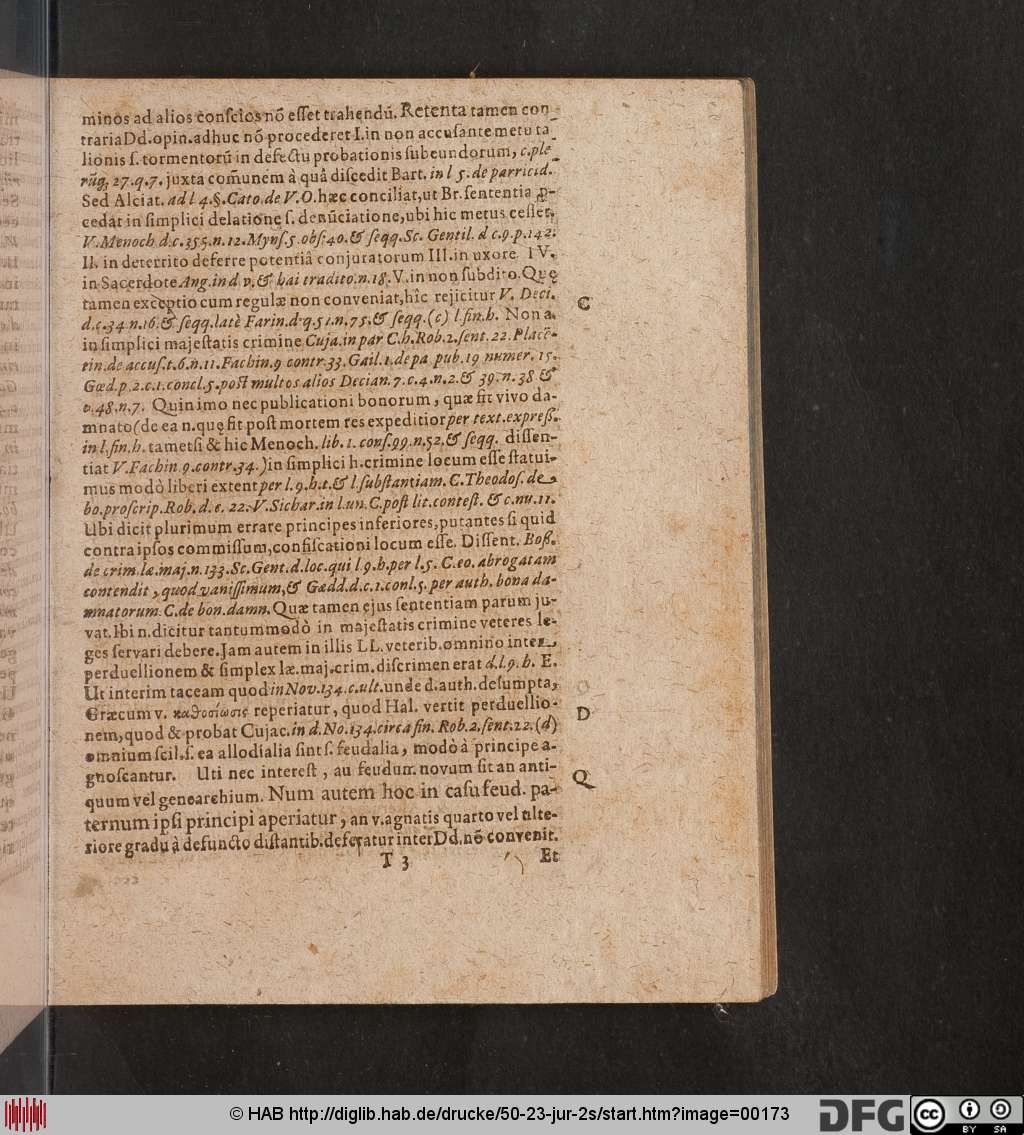 minos ad alios conſcios nõ eſſet trahendũ. Retenta tamen con-
traria Dd. opin. adhuc nõ procederet I. in non accuſante metu ta-
lionis ſ. tormentorũ in defectu probationis ſubeundorum, c. ple-
rũq; 27. q. 7. juxta com̃unem à quâ diſcedit Bart. in l 5. de parricid.
Sed Alciat. ad l 4. §. Cato. de V. O. hæc conciliat, ut Br. ſententia ꝓ-
cedat in ſimplici delatione ſ. denũciatione, ubi hic metus ceſſet,
V. Menoch d. c. 355. n. 12. Mynſ. 5 obſ. 40. & ſeqq. Sc. Gentil. d c. 9. p. 142.
II. in deterrito deferre potentiâ conjuratorum III. in uxore IV.
in Sacerdote Ang. in d v. & hai tradito. n. 18. V. in non ſubdito. Quę
tamen exceptio cum regulæ non conveniat, hîc rejicitur V. Deci.
d. c. 34 n. 16. & ſeqq. latè Farin. d. q. 51. n. 75. & ſeqq. (c) l. fin. h. Non a.
in ſimplici majeſtatis crimine Cuja. in par C. h. Rob. 2. ſent. 22. Placẽ-
tin. de accuſ. t. 6. n. 11. Fachin. 9 contr. 33. Gail. 1. de pa pub. 19 numer. 15.
Gœd. p. 2. c. 1. concl. 5. poſt multos alios Decian. 7. c. 4. n. 2. & 39. n. 38 &
c. 48. n. 7. Quin imo nec publicationi bonorum, quæ fit vivo da-
mnato (de ea n. quę fit poſt mortem res expeditior per text. expreß.
in l. fin. h. tametſi & hic Menoch. lib. 1. conſ. 99. n. 52. & ſeqq. diſſen-
tiat V. Fachin 9. contr. 34.) in ſimplici h. crimine locum eſſe ſtatui-
mus modò liberi extent per l. 9. h. t. & l. ſubſtantiam. C. Theodoſ. de
bo. proſcrip. Rob. d. c. 22. V. Sichar. in l. un. C. poſt lit. conteſt. & c. nu. 11.
Ubi dicit plurimum errare principes inferiores, putantes ſi quid
contra ipſos commiſſum, confiſcationi locum eſſe. Diſſent. Boß.
de crim. læ. maj. n. 133. Sc. Gent. d. loc. qui l 9. h. per l. 5. C. eo. abrogatam
contendit, quod vaniſſimum, & Gædd. d. c. 1. conl. 5. per auth. bona da-
mnatorum. C. de bon. damn. Quæ tamen ejus ſententiam parum ju-
vat. Ibi n. dicitur tantummodò in majeſtatis crimine veteres le-
ges ſervari debere. Jam autem in illis LL. veterib. omnino inter
perduellionem & ſimplex læ. maj. crim. diſcrimen erat d. l. 9. h. E.
Ut interim taceam quod in Nov. 134. c. ult. unde d. auth. deſumpta,
Græcum v. καθοσίωσις reperiatur, quod Hal. vertit perduellio-
nem, quod & probat Cujac. in d. No. 134. circa fin. Rob. 2. ſent. 22. (d)
omnium ſcil. ſ. ea allodialia ſint ſ. feudalia, modò à principe a-
gnoſcantur. Uti nec intereſt, au feudum novum ſit an anti-
quum vel genearchium. Num autem hoc in caſu feud. pa-
ternum ipſi principi aperiatur, an v. agnatis quarto vel ulte-
riore gradu à defuncto diſtantib. deferatur inter Dd. nõ convenit.
T 3 Et
C
D
Q
© HAB http://diglib.hab.de/drucke/50-23-jur-2s/start.htm?image=00173
DFG
cc BY SA